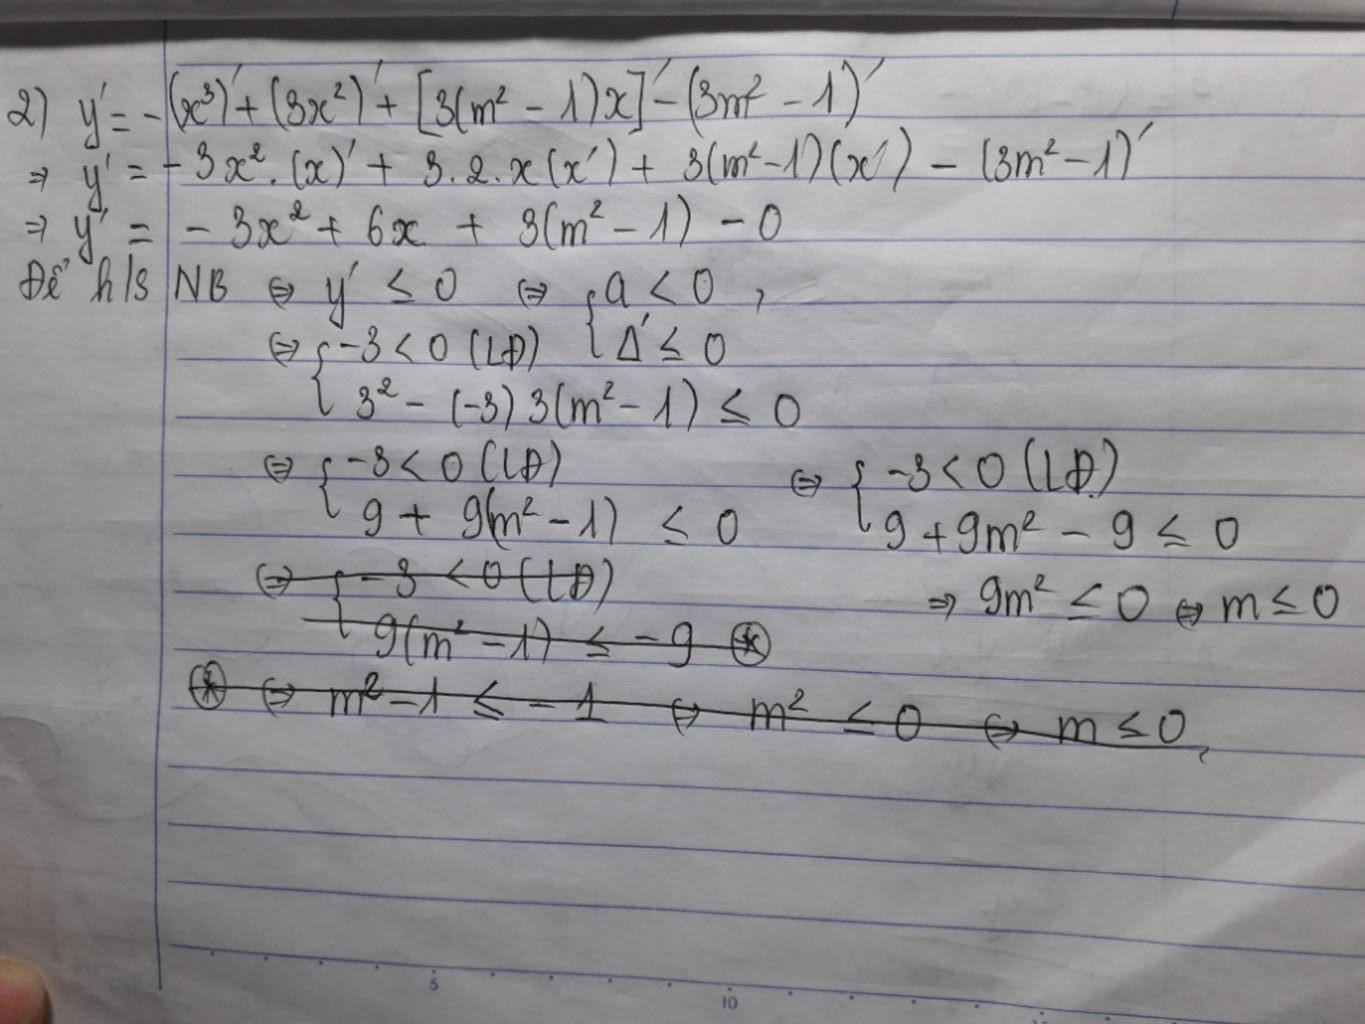 2) y' = -(x³)' + (3x²)' + [3(m² - 1)x]' - (3m² - 1)'
⇒ y' = - 3x².(x)' + 3.2.x(x') + 3(m²-1)(x') - (3m²-1)'
⇒ y' = - 3x² + 6x + 3(m² - 1) - 0
Để h/s NB ⇔ y' ≤ 0 ⇔ { a < 0,
Δ' ≤ 0
⇔ { -3 < 0 (LĐ)
3² - (-3)3(m² - 1) ≤ 0
⇔ { -3 < 0 (LĐ)
9 + 9(m² - 1) ≤ 0
⇔ { -3 < 0 (LĐ)
9 + 9m² - 9 ≤ 0
⇒ 9m² ≤ 0 ⇔ m ≤ 0
⇔ { -3 < 0 (LĐ)
9(m² - 1) ≤ -9 (*)
(*) ⇔ m² - 1 ≤ -1 ⇔ m² ≤ 0 ⇔ m ≤ 0,
5
10